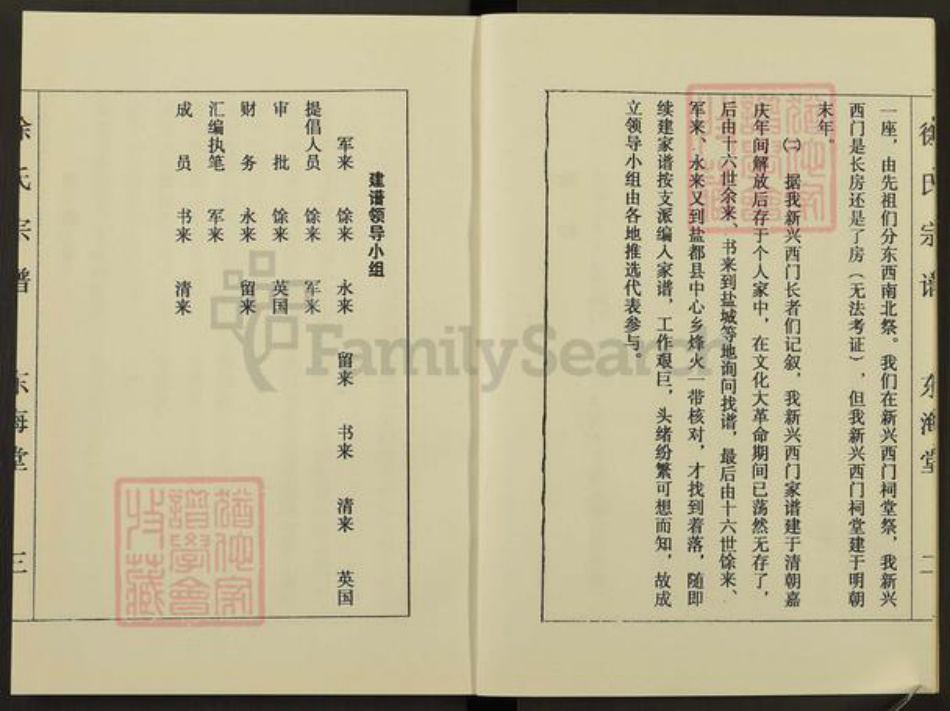 徐氏宗谱 东海堂 二
一座，由先祖们分东西南北祭。我们在新兴西门祠堂祭，我新兴
西门是长房还是了房（无法考证），但我新兴西门祠堂建于明朝
末年。
㈡ 据我新兴西门长者们记叙，我新兴西门家谱建于清朝嘉
庆年间解放后存于个人家中，在文化大革命期间已荡然无存了，
后由十六世余来、书来到盐城等地询问找谱，最后由十六世馀来、
军来、永来又到盐都县中心乡烽火一带核对，才找到着落，随即
续建家谱按支派编入家谱，工作艰巨，头绪纷繁可想而知，故成
立领导小组由各地推选代表参与。
建谱领导小组
军来 馀来 永来 留来 书来 清来 英国
提倡人员 馀来 军来
审批 馀来 英国
财务 永来 留来
汇编执笔 军来
成员 书来 清来
徐氏宗谱 东海堂 三
FamilySearch